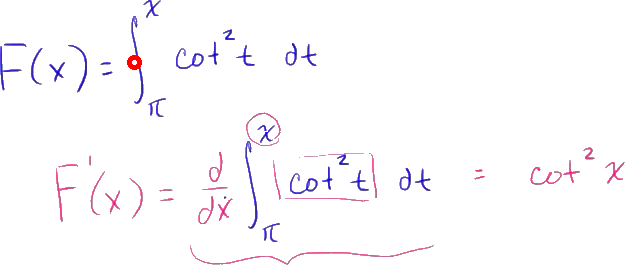 F(x) = ∫_π^x cot²t dt
F'(x) = d/dx ∫_π^x |cot²t| dt = cot²x